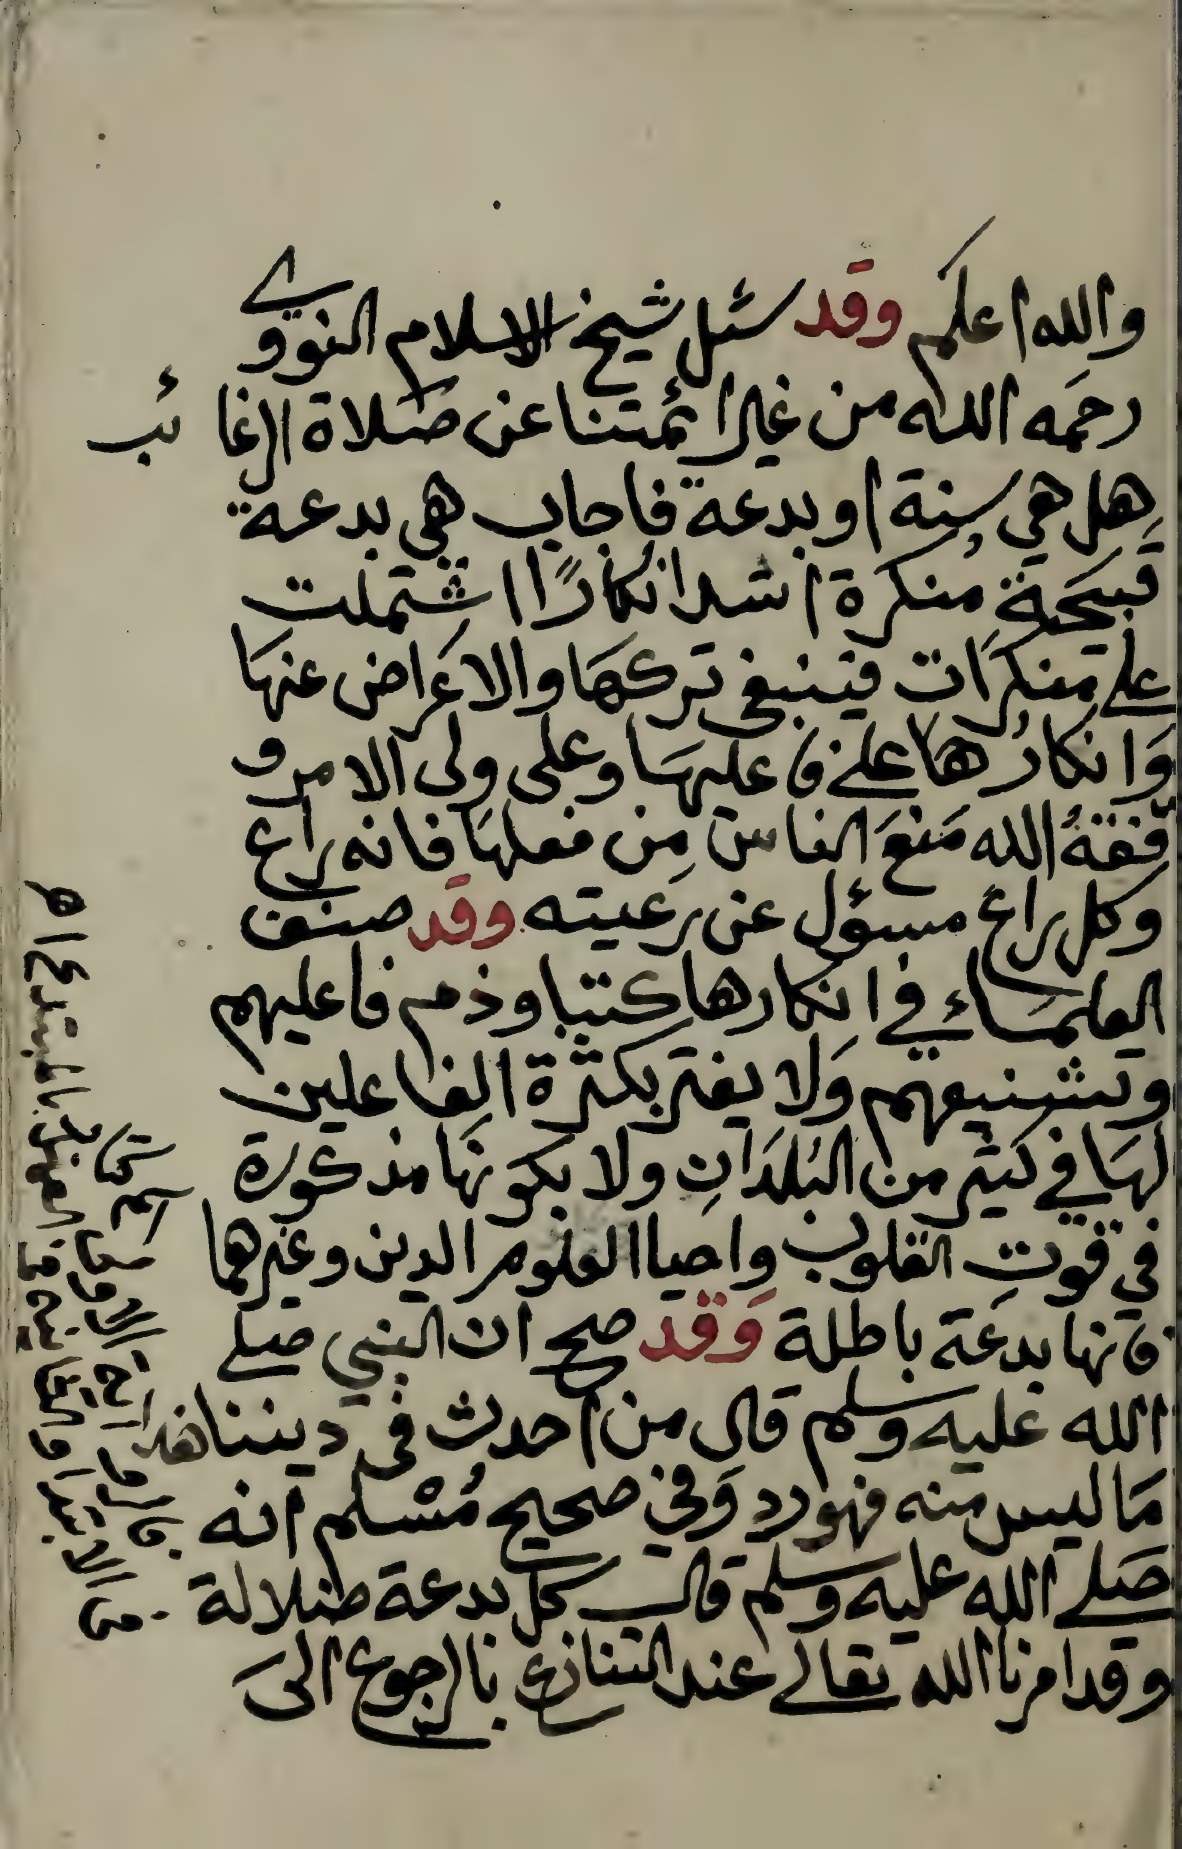 والله اعلم وقد سئل شيخ الاسلام النووي
رحمه الله من غير ائمتنا عن صلاة الرغائب
هل هي سنة او بدعة فاجاب هي بدعة
قبيحة منكرة اشد انكارًا اشتملت
على منكرات فينبغي تركها والاعراض عنها
وانكارها على فاعليها وعلى ولي الامر و
فقهُ الله منعَ الناس من فعلها فانه راع
وكل راع مسؤل عن رعيته وقد صنف
العلماء في انكارها كتبا وذم فاعليهم
وتشنيعهم ولا يغتر بكثرة الفاعلين
لها في كثير من البُلدَانِ ولا بكونها مذكورة
في قوتِ القلوب واحيا العلوم الدين وغيرهما
فانها بدعَة باطلة وَقد صح ان النبي صلى
الله عليه وسلم قال من احدث في ديننا هذا
مَا ليس منه فهو رد وَفي صحيح مُسْلم انه
صَلى الله عليه وسلم قال كل بدعة ضلالة
وقد امرنا الله تعالى عند التنازع بالرجوع الىَ